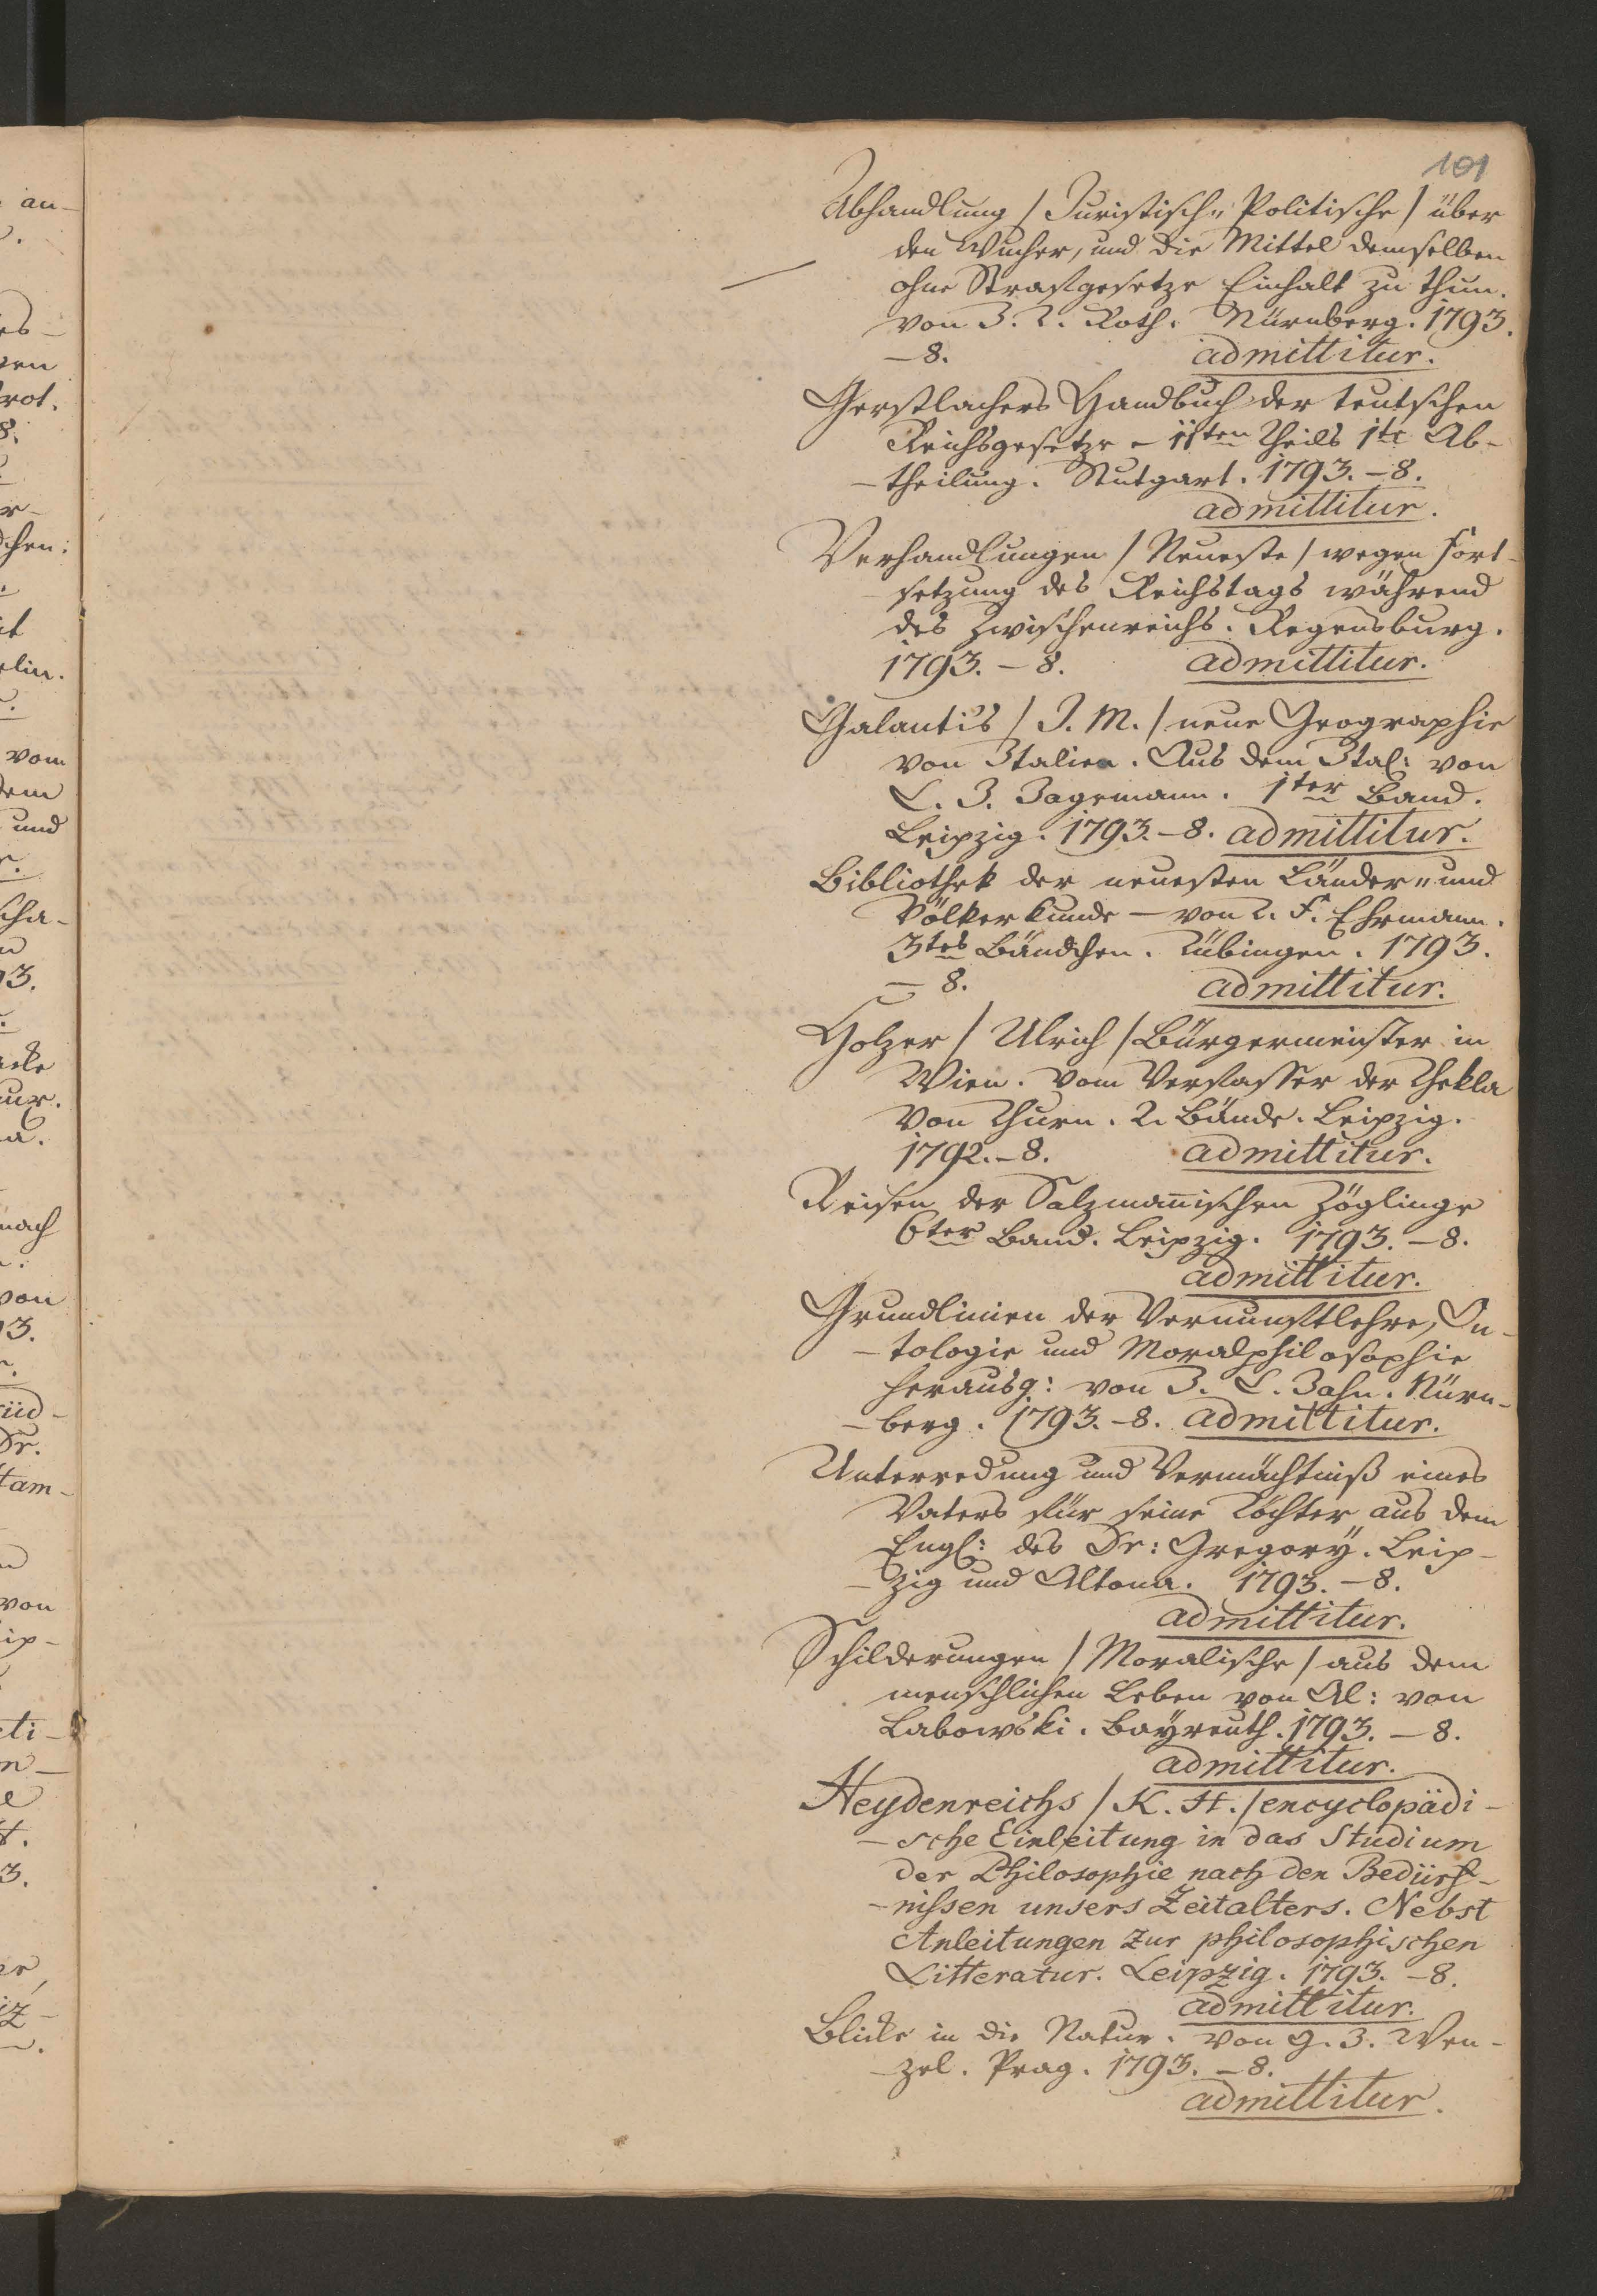 101
Abhandlung / Juristisch„ Politische / über
den Wucher, und die Mittel demselben
ohne Strafgesetze Einhalt zu thun.
von J. L. Roth. Nürnberg. 1793.
– 8. admittitur.
Gerstlachers Handbuch der teutschen
Reichsgesetze – 11ten Theils 1te Ab-
-theilung. Stutgart. 1793. – 8.
admittitur.
Verhandlungen / Neueste / wegen Fort-
setzung des Reichstags während
des Zwischenreichs. Regensburg.
1793. – 8. admittitur.
Galanti's / J. M. / neue Geographie
von Italien. Aus dem Ital: von
C. J. Jagemann. 1ter Band.
Leipzig. 1793. – 8. admittitur.
Bibliothek der neuesten Länder„ und
Völkerkunde – von T. F. Ehrmann.
3tes Bändchen. Tübingen. 1793.
– 8. admittitur.
Holzer / Ulrich / Bürgermeister in
Wien. Vom Verfasser der Thekla
von Thurn. 2. Bände. Leipzig.
1792. – 8. admittitur.
Reisen der Salzmañischen Zöglinge
6ter Band. Leipzig. 1793. – 8.
admittitur.
Grundlinien der Vernunftlehre, On-
-tologie und Moralphilosophie
herausg: von J. C. Zahn. Nürn-
-berg. 1793. – 8. admittitur.
Unterredung und Vermächtniß eines
Vaters für seine Töchter aus dem
Engl: des Dr: Gregory. Leip-
-zig und Altona. 1793. – 8.
admittitur.
Schilderungen / Moralische / aus dem
menschlichen Leben von Al: von
Labowski. Bayreuth. 1793. – 8.
admittitur.
Heydenreichs / K. H. / encyclopädi-
-sche Einleitung in das Studium
der Philosophie nach den Bedürf-
-nissen unsers Zeitalters. Nebst
Anleitungen zur philosophischen
Litteratur. Leipzig. 1793. – 8.
admittitur.
Blicke in die Natur. Von G. J. Wen-
-zel. Prag. 1793. – 8.
admittitur.